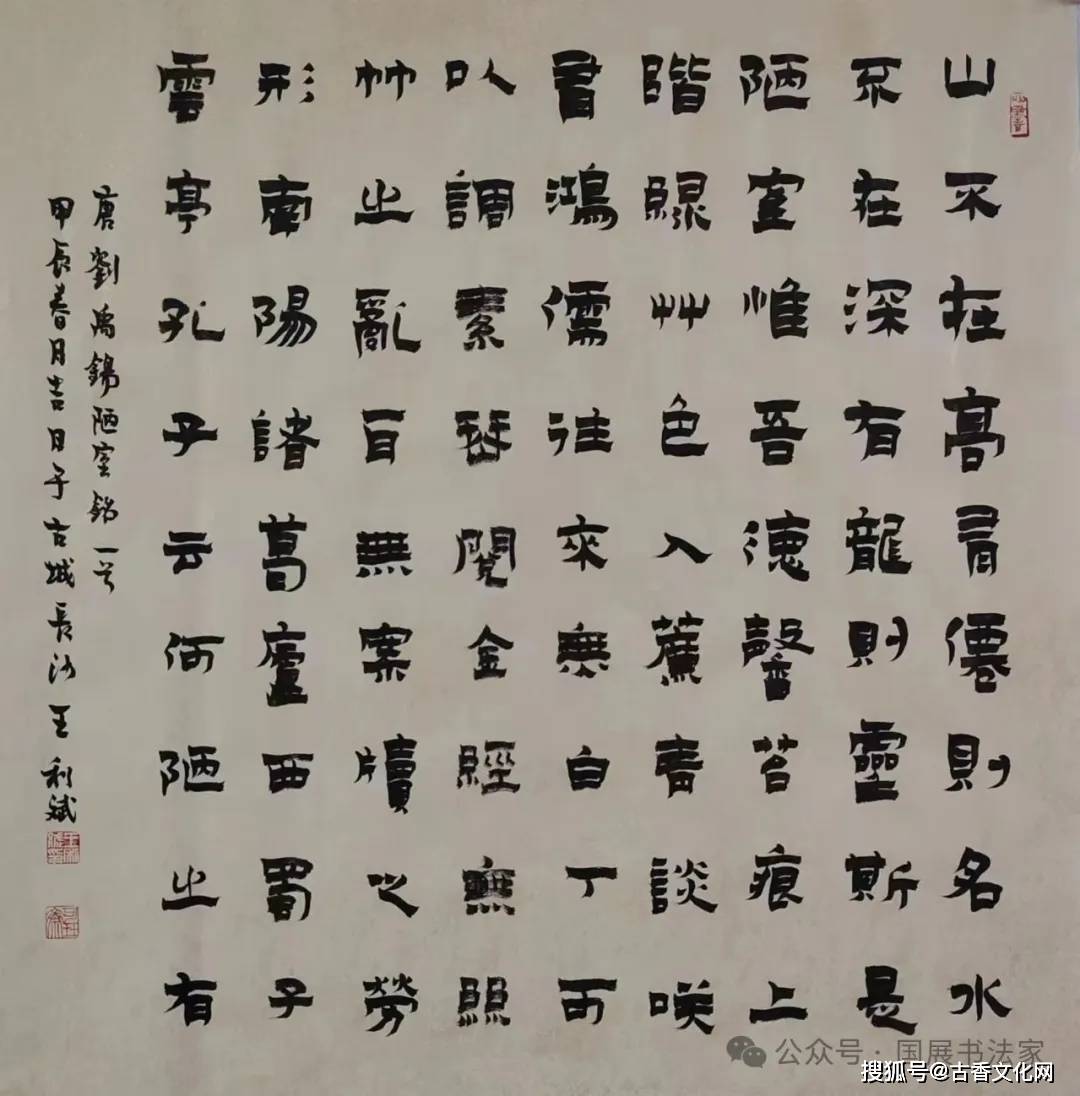 山不在高有僊則名水
不在深有龍則靈斯是
陋室惟吾德馨苔痕上
階緑艸色入簾青談咲
有鴻儒往來無白丁可
以調素琴閱金經無絲
竹之亂耳無案牘之勞
形南陽諸葛廬西蜀子
雲亭孔子云何陋之有
唐劉禹錫陋室銘一首
甲辰春月吉日于古城長沙王利斌
公众号·国展书法家
搜狐号@古香文化网